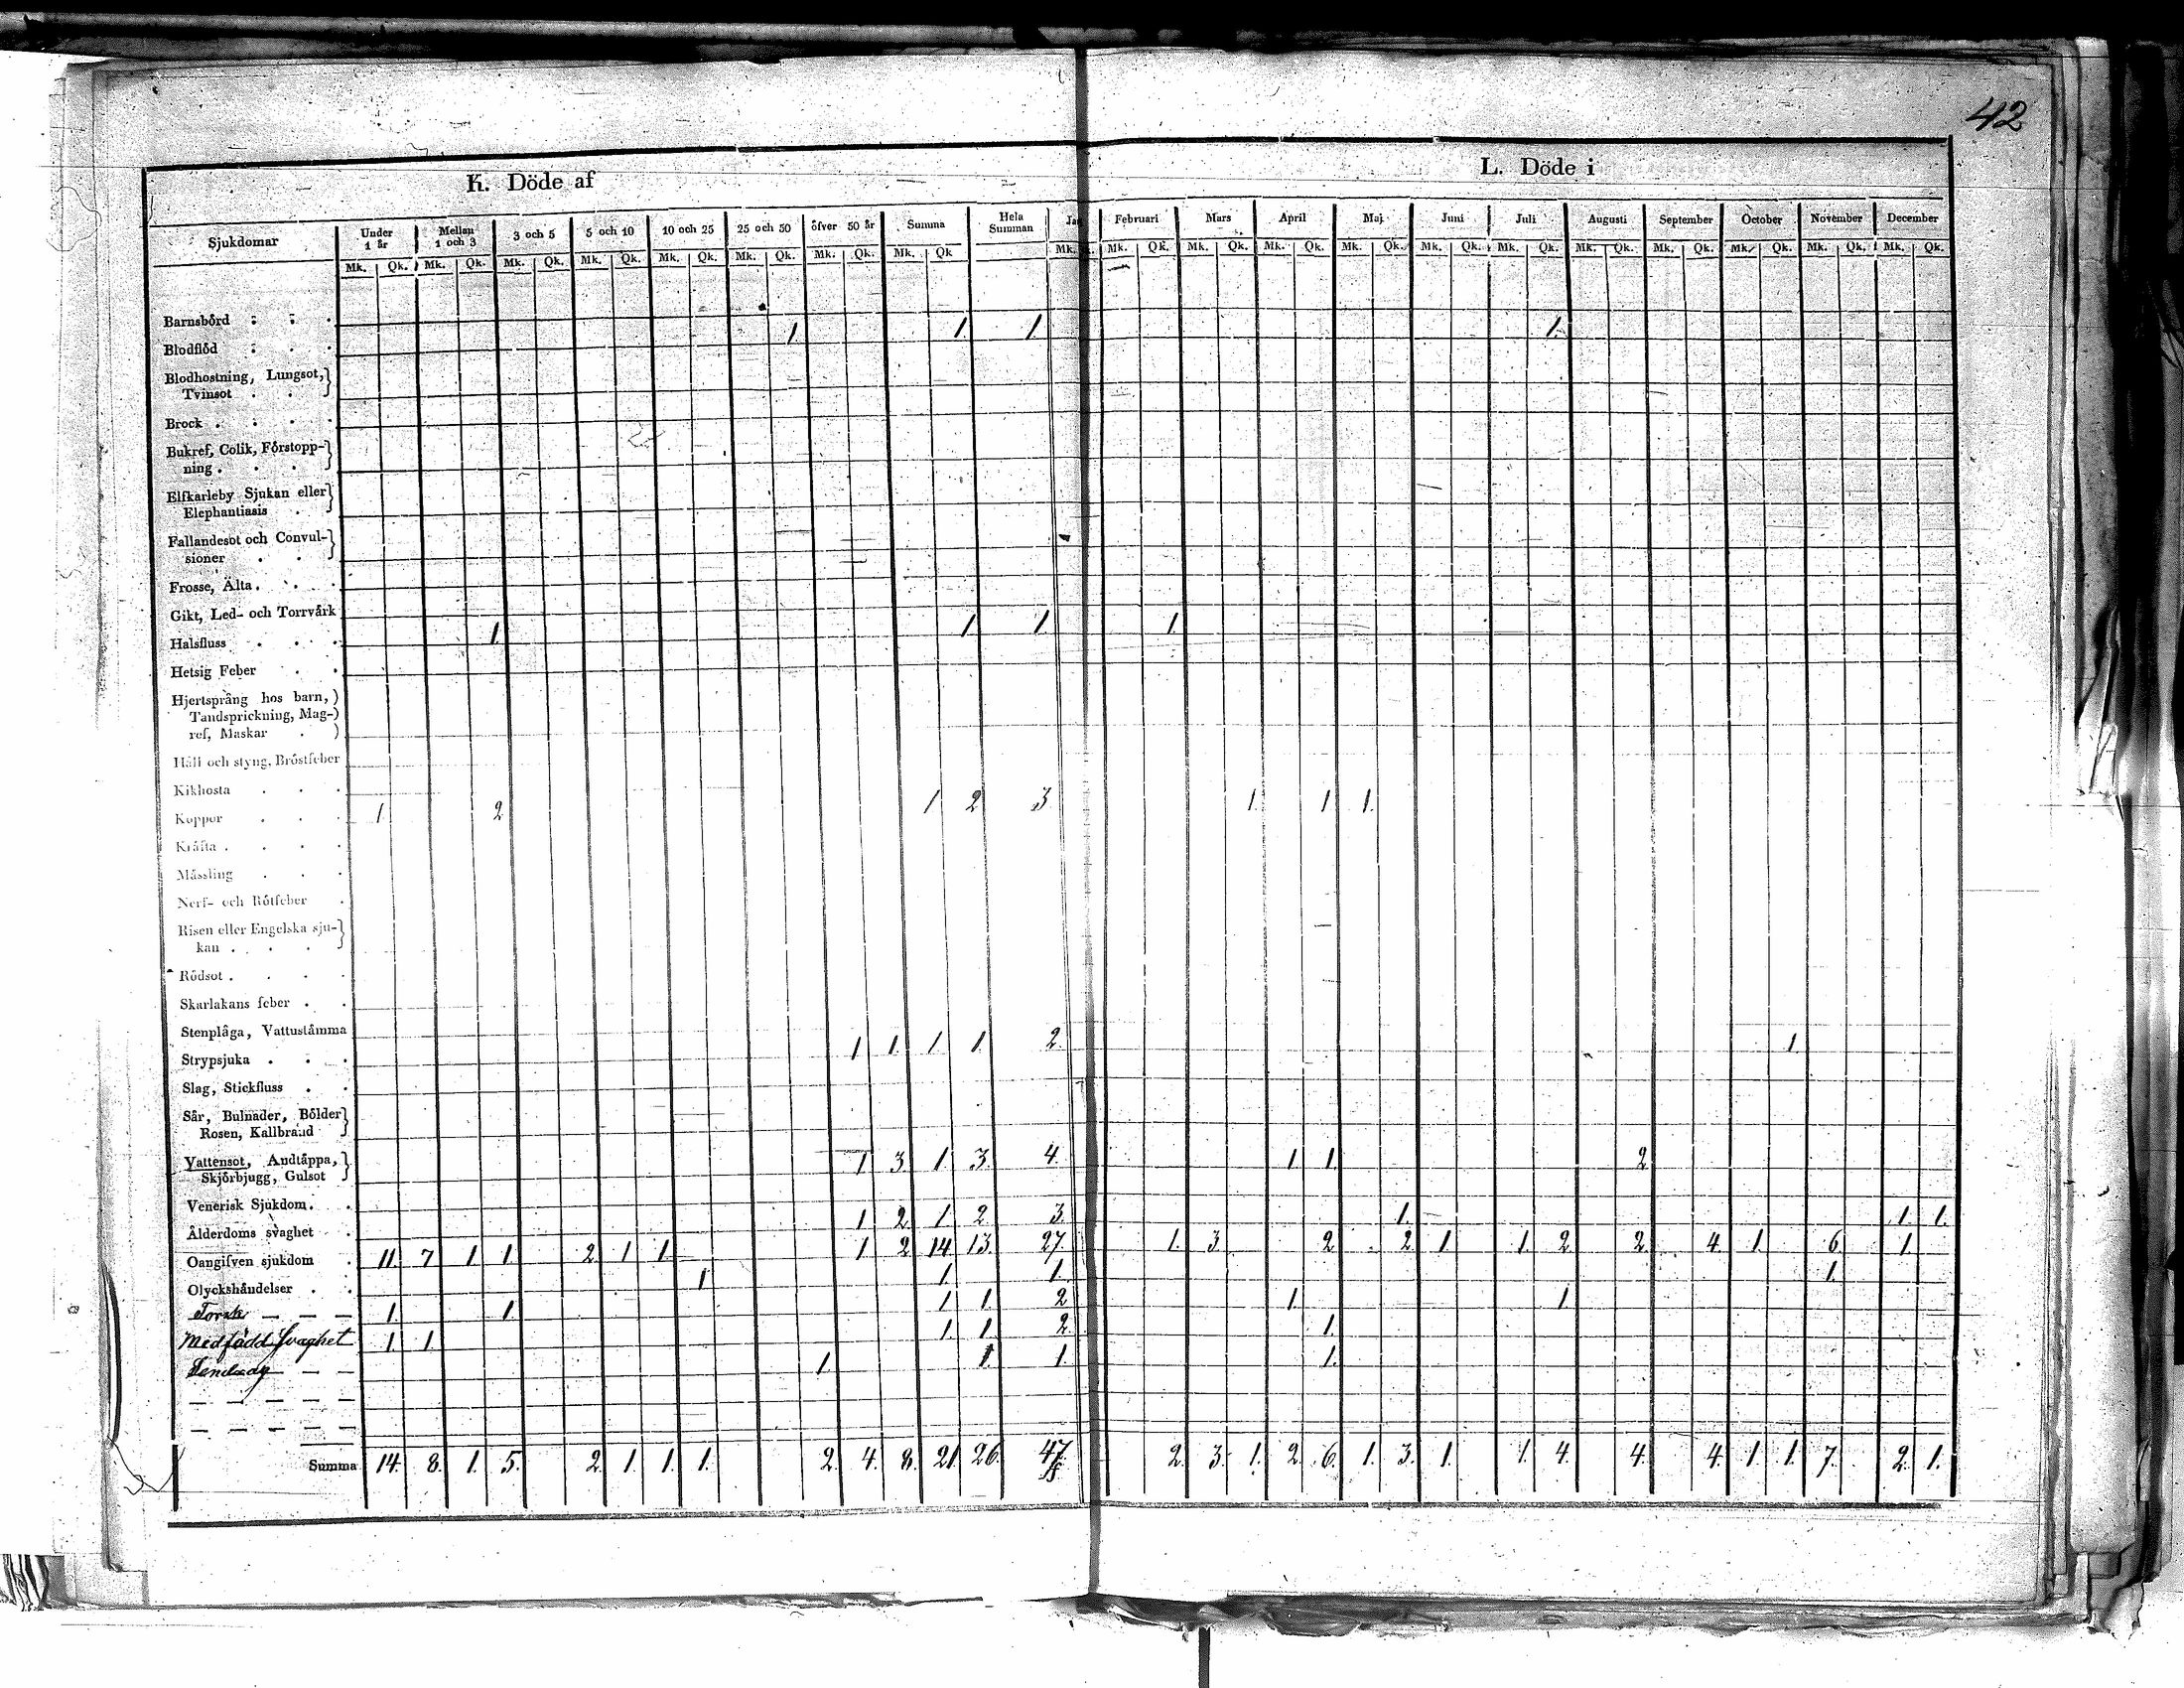 42
K. Döde af
L. Döde i
Sjukdomar Under 1 år Mellan 1 och 3 3 och 5 5 och 10 10 och 25 25 och 50 öfver 50 år Summa Hela Summan Jan Februari Mars April Maj Juni Juli Augusti September October November December
Mk. Qk. Mk. Qk. Mk. Qk. Mk. Qk. Mk. Qk. Mk. Qk. Mk. Qk. Mk. Qk Mk. Mk. Qk. Mk. Qk. Mk. Qk. Mk. Qk. Mk. Qk. Mk. Qk. Mk. Qk. Mk. Qk. Mk. Qk. Mk. Qk. Mk. Qk.
Barnsbörd . . .
1 1 1 1.
Blodflöd . . .
Blodhostning, Lungsot,}
Tvinsot . . }
Brock . . . .
Bukref, Colik, Förstopp-}
ning . . . }
Elfkarleby Sjukan eller}
Elephantiasis . }
Fallandesot och Convul-}
sioner . . }
Frosse, Älta . . .
Gikt, Led- och Torrvärk
Halsfluss . . . 1. 1 1 1.
Hetsig Feber . .
Hjertsprång hos barn, )
Tandsprickning, Mag-)
ref, Maskar . )
Håll och styng, Bröstfeber
Kikhosta . . .
Koppor . . . 1. 2 1 2 3 1. 1 1.
Kräfta . . . .
Mässling . . .
Nerf- och Rötfeber .
Risen eller Engelska sju-}
kan . . . }
Rödsot . . . .
Skarlakans feber . .
Stenplåga, Vattustämma
Strypsjuka . . . 1 1. 1 1. 2. 1.
Slag, Stickfluss . .
Sår, Bulnader, Bölder}
Rosen, Kallbrand }
Vattensot, Andtäppa,} 1 3 1 3. 4. 1 1. 2
Skjörbjugg, Gulsot }
Venerisk Sjukdom . .
1 2 1 2 3. 1. 1. 1.
Ålderdoms svaghet .
Oangifven sjukdom . 11. 7 1 1 2 1 1 1 2 14 13. 27. 1. 3. 2 2 1 1. 2 2 4 1. 6 1.
Olyckshändelser . . 1 1 1. 1.
Torsk — — — 1. 1 1 1 2 1 1
Medfödd Svaghet 1. 1 1. 1. 2. 1.
— — 1. 1 1. 1.
— — — — —
— — — — —
Summa 14. 8. 1. 5. 2 1. 1. 1. 2. 4. 8. 21. 26. 47. 2. 3. 1. 2. 6. 1. 3. 1. 1. 4. 4. 4. 1. 1. 7. 2. 1.